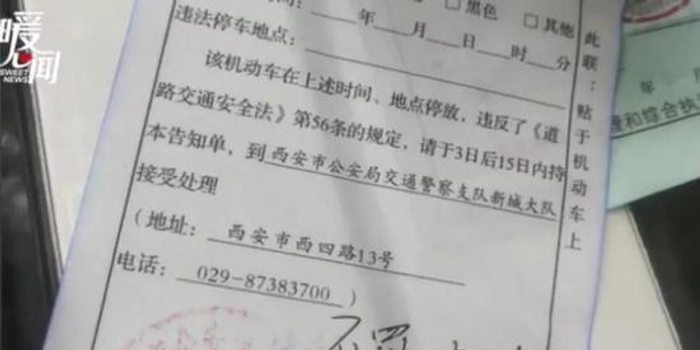 暖闻
SWEET NEWS
□黑色 □其他
时间：____年____月____日____时____分
违法停车地点：
该机动车在上述时间、地点停放，违反了《道
路交通安全法》第56条的规定，请于3日后15日内持
本告知单，到西安市公安局交通警察支队新城大队
接受处理
（地址：西安市西四路13号
电话：029-87383700）
此联：贴于机动车上